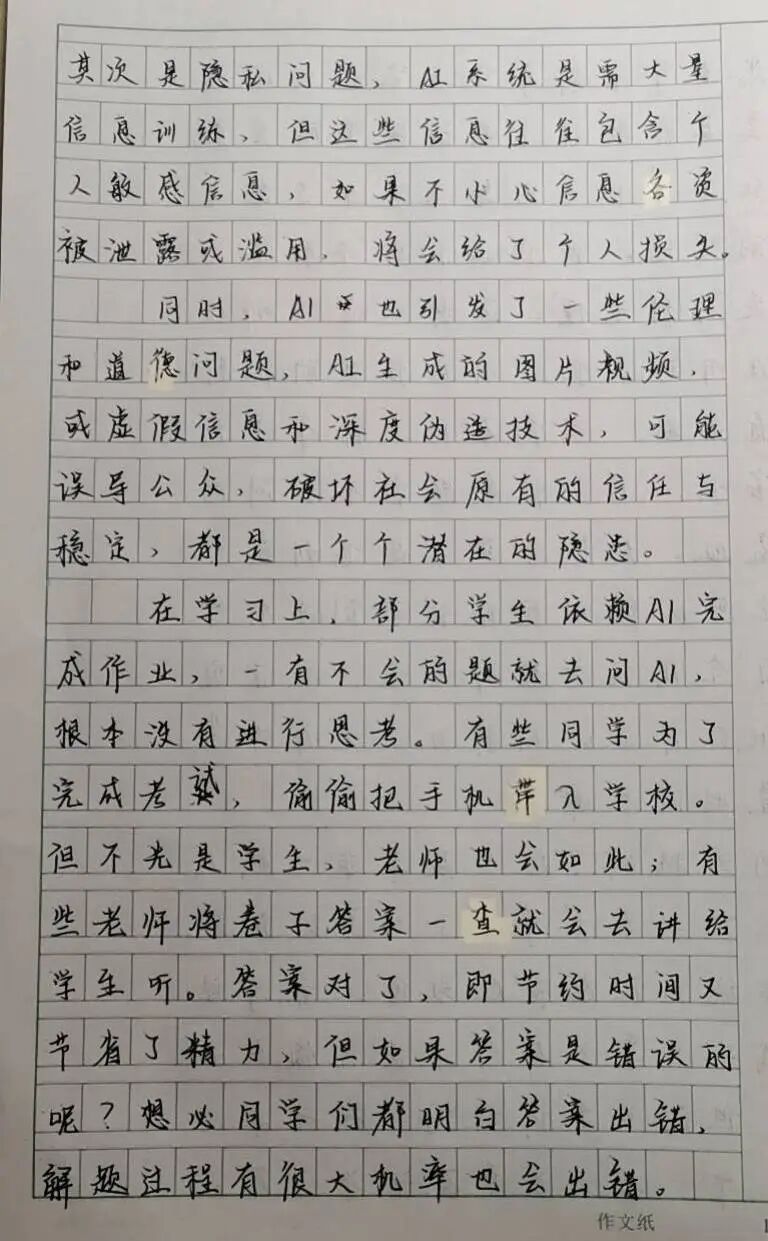 其次是隐私问题，AI系统是需大量
信息训练，但这些信息往往包含个
人敏感信息，如果不小心信息各资
被泄露或滥用，将会给了个人损失。
同时，AI也引发了一些伦理
和道德问题，AI生成的图片视频，
或虚假信息和深度伪造技术，可能
误导公众，破坏社会原有的信任与
稳定，都是一个个潜在的隐患。
在学习上，部分学生依赖AI完
成作业，一有不会的题就去问AI，
根本没有进行思考。有些同学为了
完成考，偷偷把手机带入学校。
但不光是学生，老师也会如此；有
些老师将卷子答案一查就会去讲给
学生听。答案对了，即节约时间又
节省了精力，但如果答案是错误的
呢？想必同学们都明白答案出错，
解题过程有很大机率也会出错。
作文纸